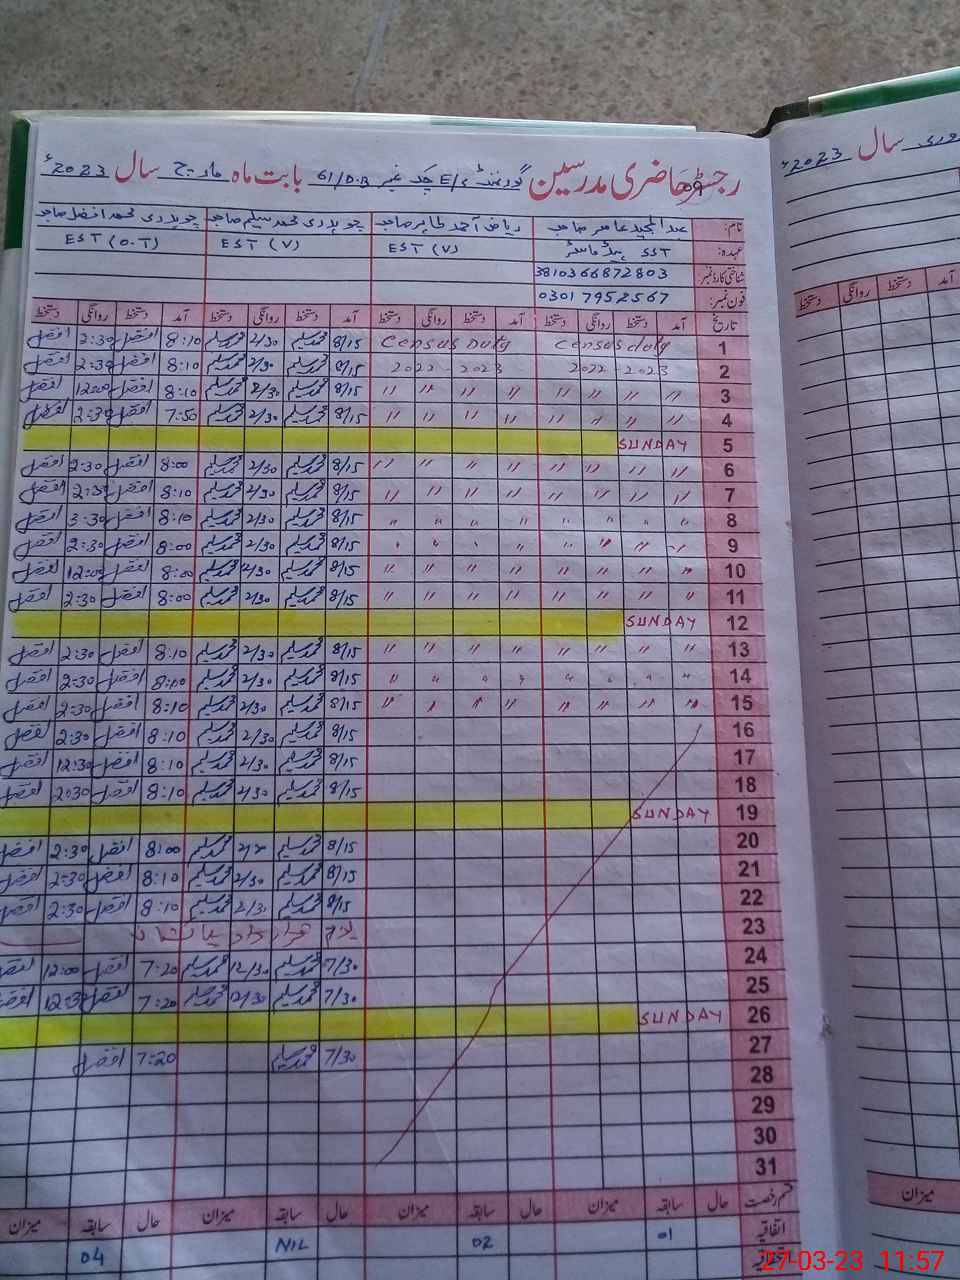 رجسٹر حاضری مدرسین گورنمنٹ E/S چک نمبر 61/D.B بابت ماہ مارچ سال 2023ء
سال 2023ء
نام: عبدالمجید عامر صاحب ریاض احمد طاہر صاحب چوہدری محمد سلیم صاحب چوہدری محمد افضل صاحب
عہدہ: SST ہیڈ ماسٹر EST (V) EST (V) EST (O.T)
شناختی کارڈ نمبر: 3810366872803
فون نمبر: 0301 7952567
تاریخ آمد دستخط روانگی دستخط آمد دستخط روانگی دستخط آمد دستخط روانگی دستخط آمد دستخط روانگی دستخط
آمد دستخط روانگی دستخط
1 Census duty Census Duty 8/15 محمد سلیم 2/30 محمد سلیم 8:10 افضل 2:30 افضل
2 2022-2023 2022-2023 8/15 محمد سلیم 2/30 محمد سلیم 8:10 افضل 2:30 افضل
3 " " " " " " " " 8/15 محمد سلیم 2/30 محمد سلیم 8:10 افضل 12:00 افضل
4 " " " " " " " " 8/15 محمد سلیم 2/30 محمد سلیم 7:50 افضل 2:30 افضل
5 SUNDAY
6 " " " " " " " " 8/15 محمد سلیم 2/30 محمد سلیم 8:00 افضل 2:30 افضل
7 " " " " " " " " 8/15 محمد سلیم 2/30 محمد سلیم 8:10 افضل 2:30 افضل
8 " " " " " " " " 8/15 محمد سلیم 2/30 محمد سلیم 8:10 افضل 3:30 افضل
9 " " " " " " " " 8/15 محمد سلیم 2/30 محمد سلیم 8:00 افضل 2:30 افضل
10 " " " " " " " " 8/15 محمد سلیم 2/30 محمد سلیم 8:00 افضل 12:00 افضل
11 " " " " " " " " 8/15 محمد سلیم 2/30 محمد سلیم 8:00 افضل 2:30 افضل
12 SUNDAY
13 " " " " " " " " 8/15 محمد سلیم 2/30 محمد سلیم 8:10 افضل 2:30 افضل
14 " " " " " " " " 8/15 محمد سلیم 2/30 محمد سلیم 8:10 افضل 2:30 افضل
15 " " " " " " " " 8/15 محمد سلیم 2/30 محمد سلیم 8:10 افضل 2:30 افضل
16 8/15 محمد سلیم 2/30 محمد سلیم 8:10 افضل 2:30 افضل
17 8/15 محمد سلیم 2/30 محمد سلیم 8:10 افضل 12:30 افضل
18 8/15 محمد سلیم 2/30 محمد سلیم 8:10 افضل 2:30 افضل
19 SUNDAY
20 8/15 محمد سلیم محمد سلیم 8:00 افضل 2:30 افضل
21 8/15 محمد سلیم 2/30 محمد سلیم 8:10 افضل 2:30 افضل
22 8/15 محمد سلیم 2/30 محمد سلیم 8:10 افضل 2:30 افضل
23 یوم قرارداد پاکستان
24 7/30 محمد سلیم 12/30 محمد سلیم 7:20 افضل 12:00 افضل
25 7/30 محمد سلیم 12/30 محمد سلیم 7:20 افضل 12:30 افضل
26 SUNDAY
27 7/30 محمد سلیم 7:20 افضل
28
29
30
31
قسم رخصت حال سابقہ میزان حال سابقہ میزان حال سابقہ میزان حال سابقہ میزان
میزان
اتفاقیہ 01 02 NIL 04
27-03-23 11:57